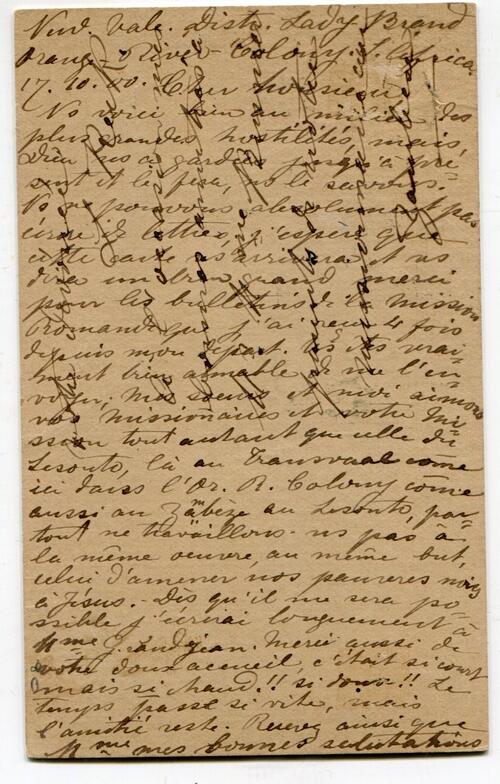 New. Vale. Distr. Lady Brand
Orange-River-Colony. S. Africa.
17.10.00. Cher Monsieur
Ns voici bien au milieu des
plus grandes hostilités, mais
Dieu ns a gardées jusqu'à pré-
sent et le fera, ns le savons.
Ns ne pouvons absolument pas
écrire de lettres, j'espère que
cette carte vs arrivera et vs
dira un bien grand merci
pour les bulletins de la Mission
romande que j'ai reçu 4 fois
depuis mon départ. Vs êtes vrai-
ment bien aimable de me l'en-
voyer; mes soeurs et moi aimons
vos missionnaires et votre Mi-
ssion tout autant que celle du
Lesouto, là au Transvaal come
ici dans l'Or. R. Colony come
aussi au Zambèze au Lesouto, par-
tout ne travaillons-ns pas à
la même oeuvre, au même but,
celui d'amener nos pauvres noirs
à Jésus. - Dès qu'il me sera po-
ssible j'écrirai longuement à
Mme Grandjean. Merci aussi de
votre doux accueil, c'était si court
mais si chaud!! si doux!! Le
temps passe si vite, mais
l'amitié reste. Recevez ainsi que
Mme mes bonnes salutations